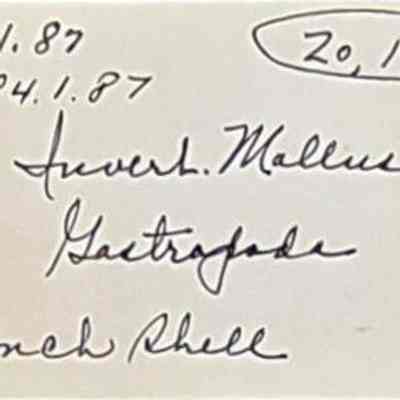 1.87
20,1
04.1.87
Invert. Mollus
Gastrapoda
nch Shell